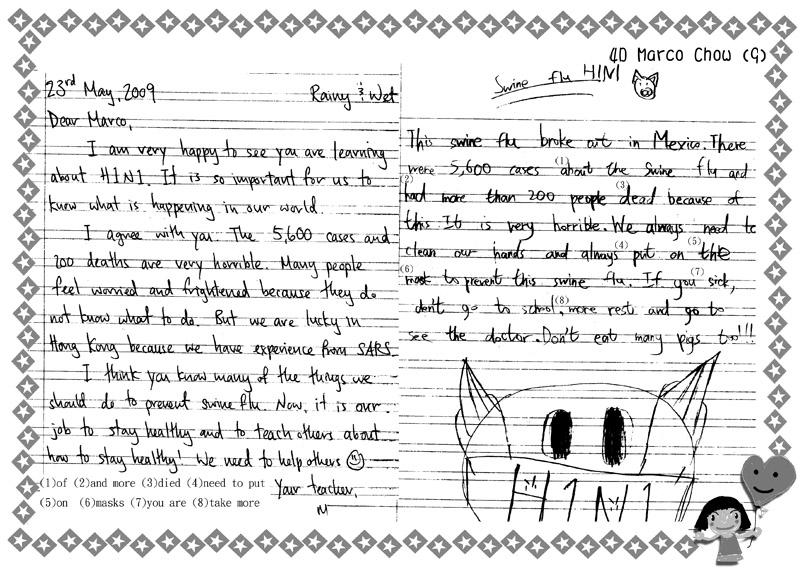 4D Marco Chow (9)
23rd May, 2009 Rainy & Wet
Dear Marco,
I am very happy to see you are learning
about H1N1. It is so important for us to
know what is happening in our world.
I agree with you. The 5,600 cases and
200 deaths are very horrible. Many people
feel worried and frightened because they do
not know what to do. But we are lucky in
Hong Kong because we have experience from SARS.
I think you know many of the things we
should do to prevent swine flu. Now, it is our
job to stay healthy and to teach others about
how to stay healthy! We need to help others
Your teacher,
M
(1)of (2)and more (3)died (4)need to put
(5)on (6)masks (7)you are (8)take more
Swine flu H1N1
This swine flu broke out in Mexico. There
were 5,600 cases (1)about the swine flu and
(2)had more than 200 people (3)dead because of
this. It is very horrible. We always need to
clean our hands and always (4)put on (5)the
(6)mast to prevent this swine flu. If you (7)sick,
don't go to school, (8)more rest and go to
see the doctor. Don't eat many pigs too!!!
H1N1